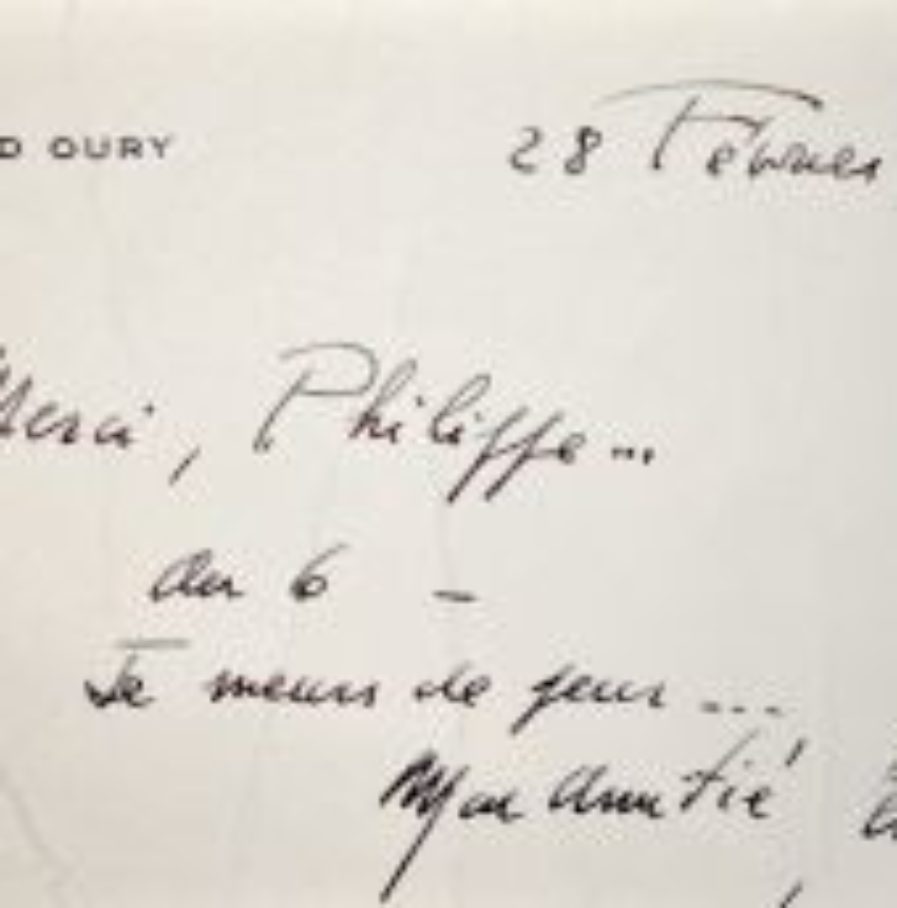 D OURY
28 Février
Merci, Philippe...
Au 6 -
Je meurs de peur ...
Mon Amitié